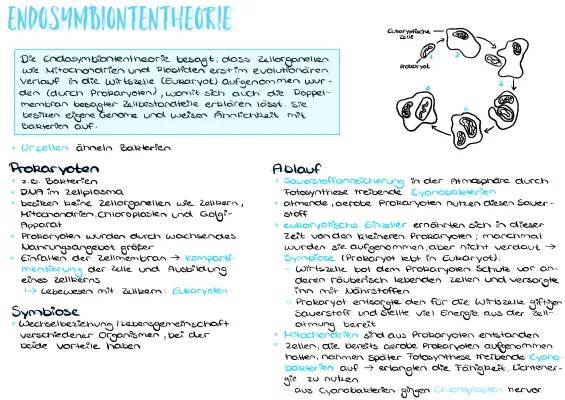 ENDOSYMBIONTENTHEORIE
Die Endosymbiontentheorie besagt, dass Zellorganellen
wie Mitochondrien und Plastiden erst im evolutionären
Verlauf in die Wirtszelle (Eukaryot) aufgenommen wur-
den (durch Prokaryoten), womit sich auch die Doppel-
membran besagter Zellbestandteile erklären lässt. Sie
besitzen eigene Genome und weisen Ähnlichkeit mit
Bakterien auf.
Eukaryotische
Zelle
Prokaryot
1
2
3
4
5
6
• Urzellen ähneln Bakterien
Prokaryoten
• z.B. Bakterien
• DNA im Zellplasma
• besitzen keine Zellorganellen wie Zellkern,
Mitochondrien, Chloroplasten und Golgi-
Apparat
• Prokaryoten wurden durch wachsendes
Nahrungsangebot größer
• Einfalten der Zellmembran → Komparti-
mentierung der Zelle und Ausbildung
eines Zellkerns
↳ Lebewesen mit Zellkern: Eukaryoten
Symbiose
• Wechselbeziehung / Lebensgemeinschaft
verschiedener Organismen, bei der
beide Vorteile haben
Ablauf
• Sauerstoffanreicherung in der Atmosphäre durch
Fotosynthese treibende Cyanobakterien
• atmende, aerobe Prokaryoten nutzen diesen Sauer-
stoff
• eukaryotische Einzeller ernährten sich in dieser
Zeit von den kleineren Prokaryoten; manchmal
wurden sie aufgenommen, aber nicht verdaut →
Symbiose (Prokaryot lebt in Eukaryot):
- Wirtszelle bot dem Prokaryoten Schutz vor an-
deren räuberisch lebenden Zellen und versorgte
ihn mit Nährstoffen
- Prokaryot entsorgte den für die Wirtszelle giftigen
Sauerstoff und stellte viel Energie aus der Zell-
atmung bereit
• Mitochondrien sind aus Prokaryoten entstanden
• Zellen, die bereits aerobe Prokaryoten aufgenommen
hatten, nahmen später Fotosynthese treibende Cyano-
bakterien auf → erlangten die Fähigkeit, Lichtener-
gie zu nutzen
- aus Cyanobakterien gingen Chloroplasten hervor